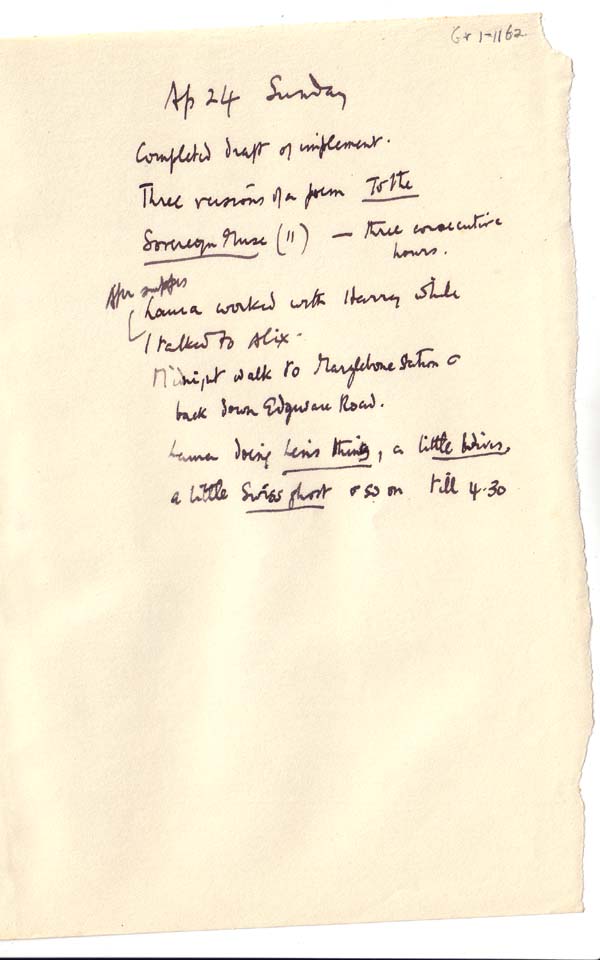 G* 1-1162
Ap 24 Sunday
Completed draft of implement.
Three versions of a poem To the
Sovereign Muse (11) — three consecutive
hours.
After supper
Laura worked with Harry while
I talked to Alix.
Midnight walk to Marylebone Station &
back down Edgware Road.
Laura doing Len's things, a little
a little Swiss ghost & so on till 4.30